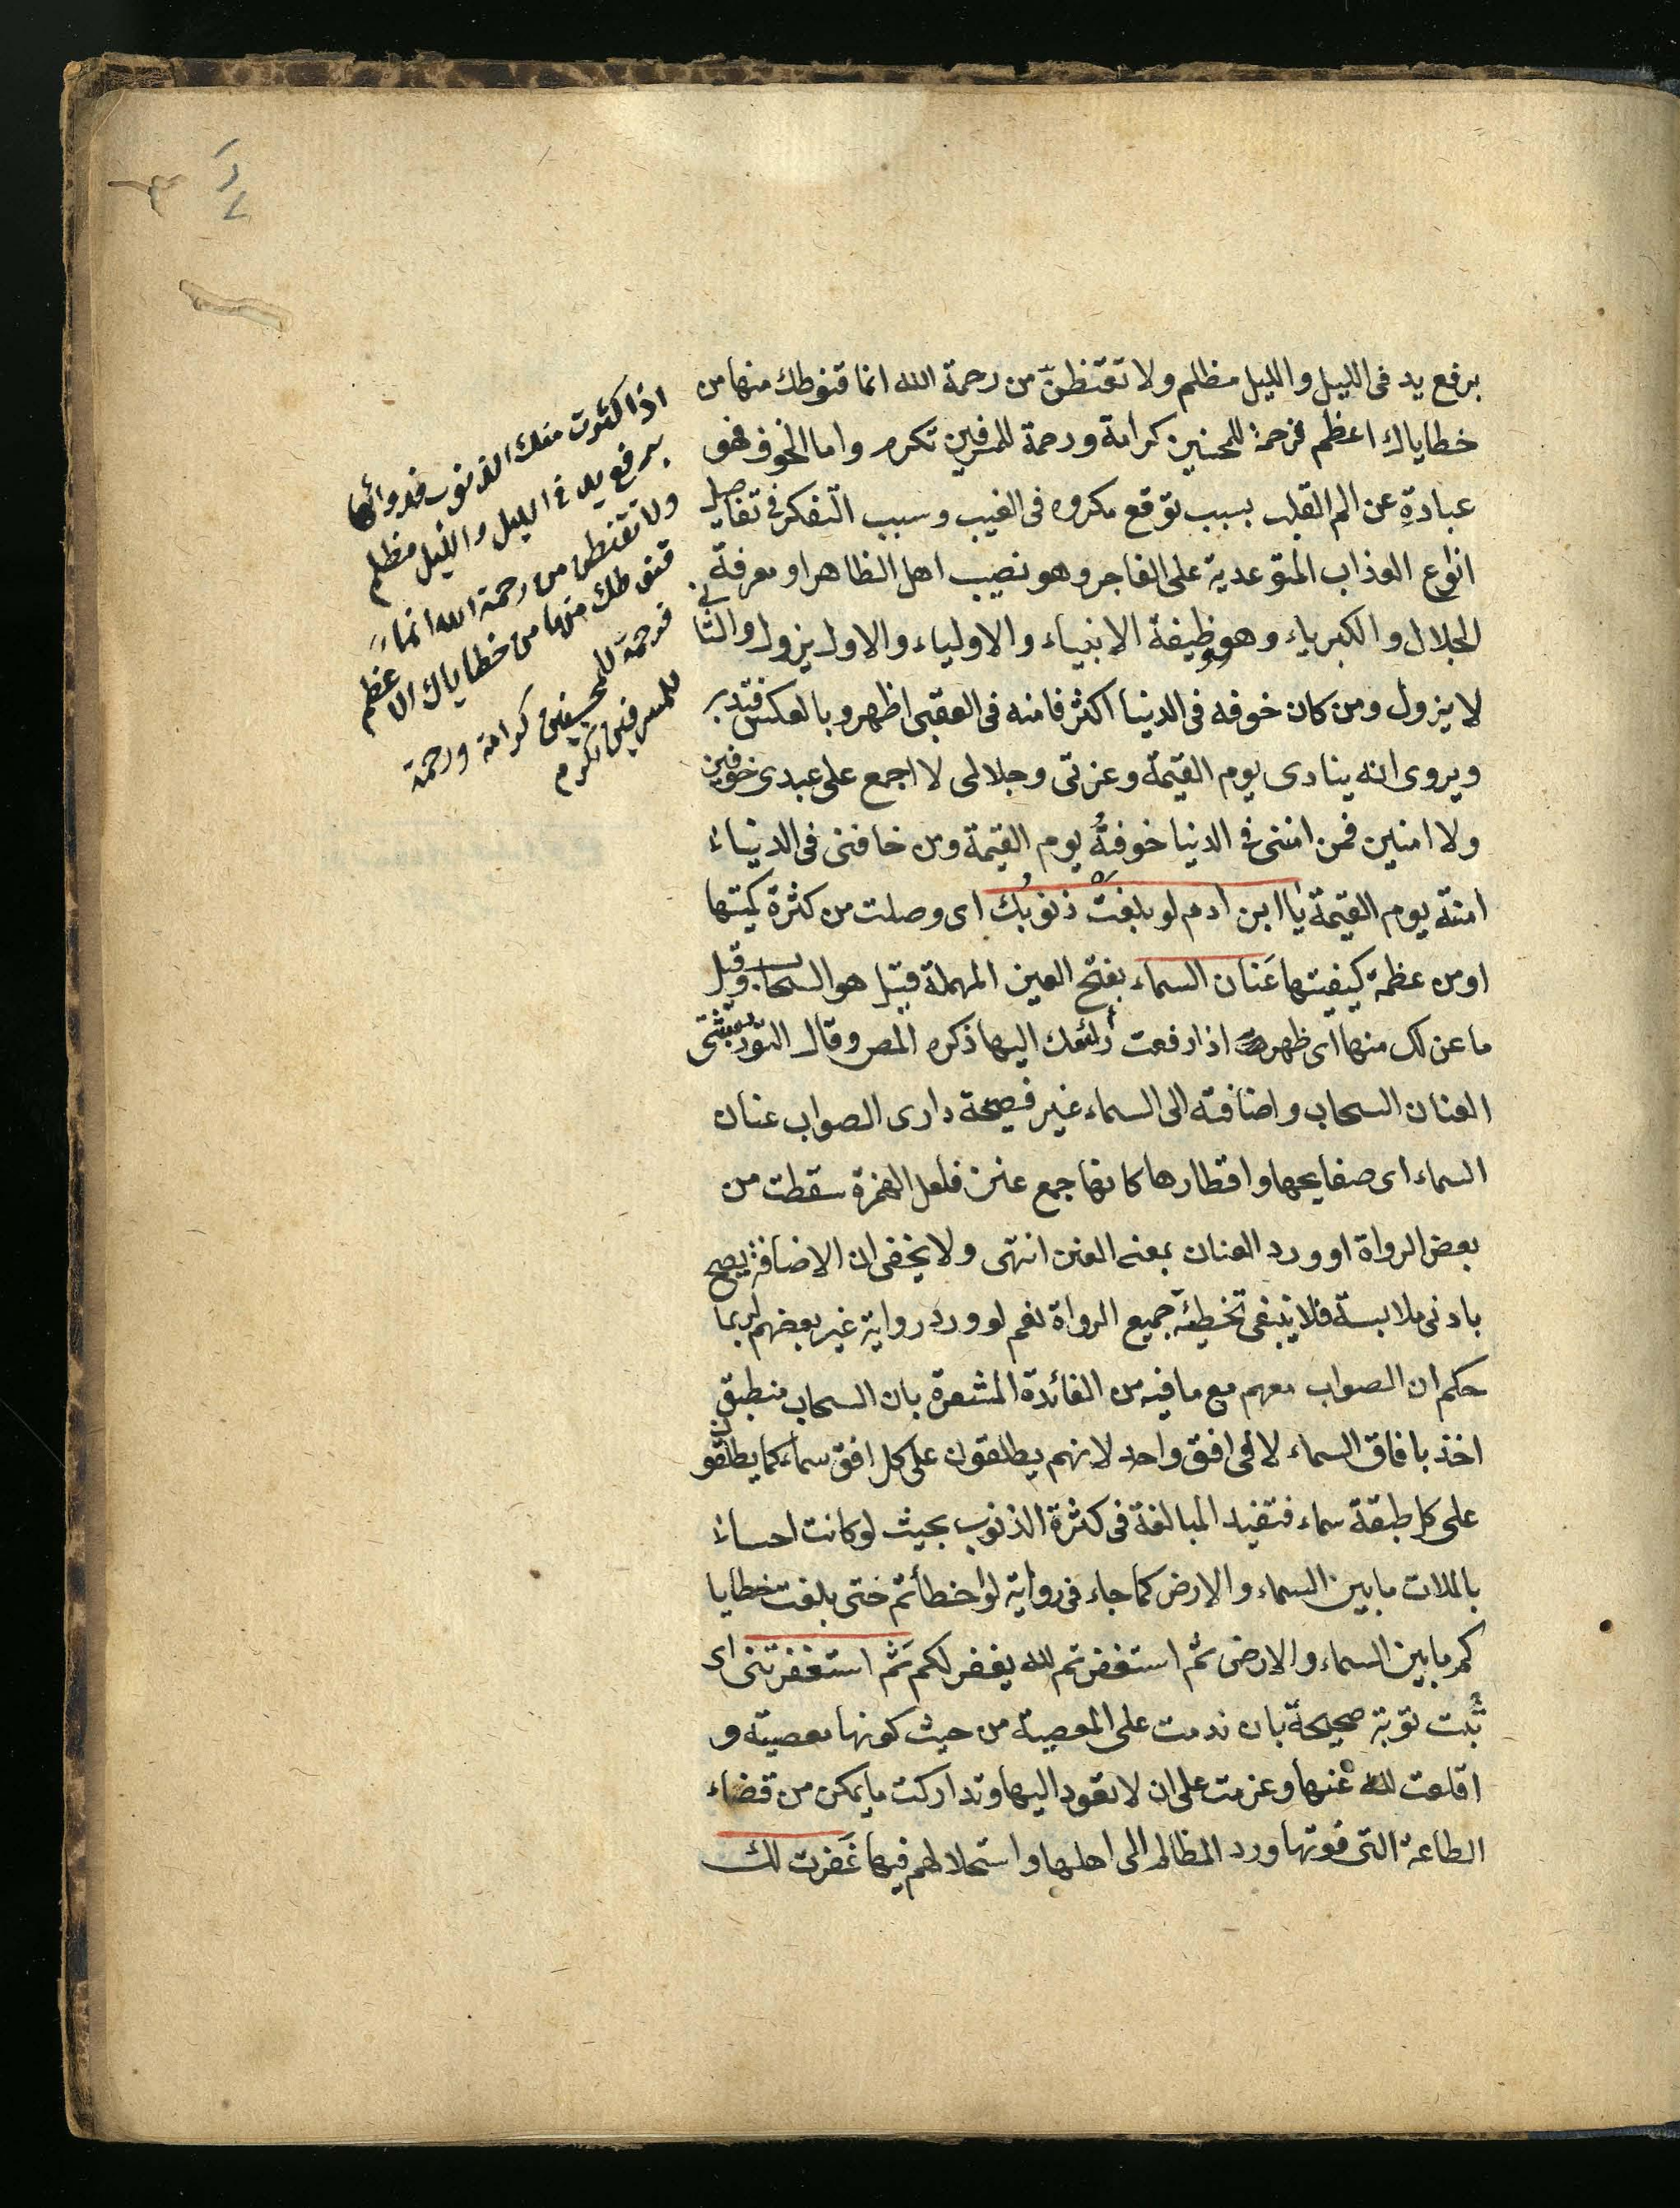 برفع يد فى الليل والليل مظلم ولا تقنطنّ من رحمة الله انما قنوطك منها من
خطاياك اعظم فرحمة للمحسنين كرامة ورحمة للمسرفين تكرم واما الخوف فهو
عبادةِ عن الم القلب بسبب توقع مكروه فى الغيب وسبب التفكر فى تفاصيل
انواع العذاب المتوعدية على الفاجر وهو نصيب اهل الظاهر او معرفة
الجلال والكبرياء وهو وظيفة الانبياء والاولياء والاول يزول والثانى
لا يزول ومن كان خوفه فى الدنيا اكثر فامنه فى العقبى اظهر وبالعكس فتدبر
ويروى انه ينادى يوم القيمة وعزتى وجلالى لا اجمع على عبدى خوفين
ولا امنين فمن امننى فى الدنيا خوفتهُ يوم القيمة ومن خافنى فى الدنياء
امنته يوم القيمة يا ابن ادم لو بلغتْ ذنوبُك اى وصلت من كثرة كميتها
او من عظمة كيفيتها عَنان السماء بفتح العين المهملة قيل هو السحاب وقيل
ما عن لك منها اى ظهر اذا رفعت رأسك اليها ذكره المص وقال التوربشتى
العنان السحاب واضافته الى السماء غير فصيحة وارى الصواب عنان
السماء اى صفايحها واقطارها كانها جمع عنن فلعل الهمزة سقطت من
بعض الرواة او ورد العنان بمعنى العنن انتهى ولا يخفى ان الاضافة يصح
بادنى ملابسة فلا ينبغى تخطئة جميع الرواة نعم لو ورد رواية غير بعضهم لربما
حكم ان الصواب معهم مع ما فيه من الفائدة المشعرة بان السحاب منطبق
اخذ بافاق السماء لا فى افق واحد لانهم يطلقون على كل افق سماء كما يطلقون
على كل طبقة سماء فتفيد المبالغة فى كثرة الذنوب بحيث لو كانت احساءً
بالملات ما بين السماء والارض كما جاء فى رواية لو اخطأتم حتى بلغت خطايا
كم ما بين السماء والارض ثم استغفرتم لله يغفر لكم ثم استغفرتنى اى
تُبت توبة صحيحة بان ندمت على المعصية من حيث كونها معصيته و
اقلعت لله عنها وعزمت على ان لا تعود اليها وتداركت ما يمكن من قضاء
الطاعة التى فوتها ورد المظالم الى اهلها واستحلالهم فيها غَفرت لك
اذا كثرت منك الذنوب فدوائها
برفع يد فى الليل والليل مظلم
ولا تقنطن من رحمة الله انماء
قنوطك منها من خطاياك الاعظم
فرحمة للمحسنين كرامة ورحمة
للمسرفين تكرم